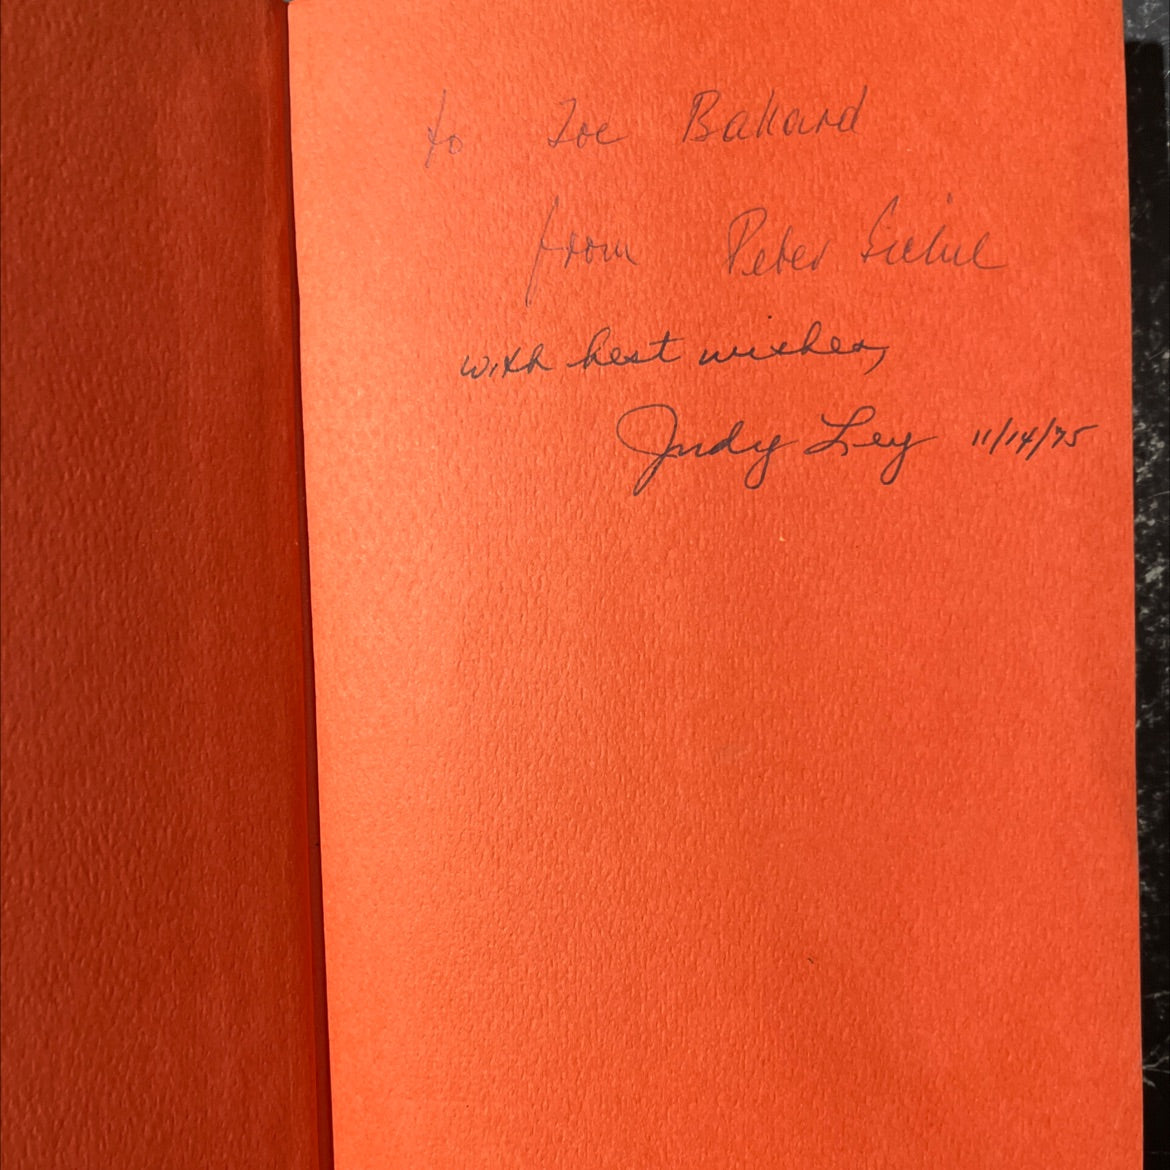 to Joe Ballard
from Peter Sichel
with best wishes,
Judy Ley 11/14/75